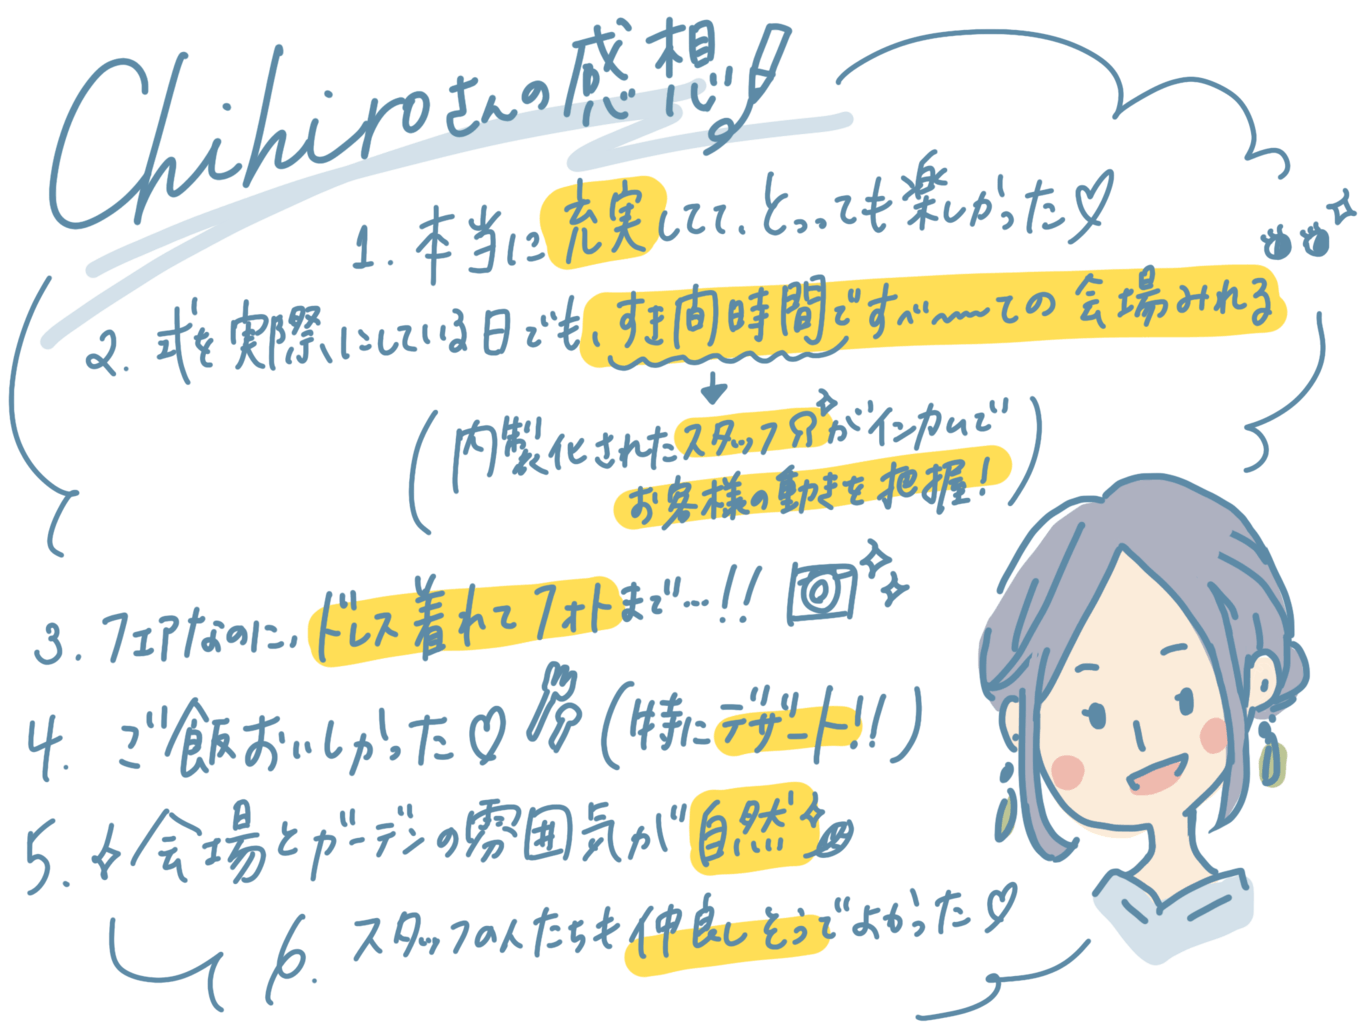 Chihiroさんの感想
1. 本当に充実してて、とっっても楽しかった♡
2. 式を実際にしている日でも、すき間時間ですべ〜〜ての会場みれる
↓
(内製化されたスタッフがインカムで
お客様の動きを把握!)
3. フェアなのに、ドレス着れてフォトまで…!!
4. ご飯おいしかった♡(特にデザート!!)
5. 会場とガーデンの雰囲気が自然
6. スタッフの人たちも仲良しそうでよかった♡